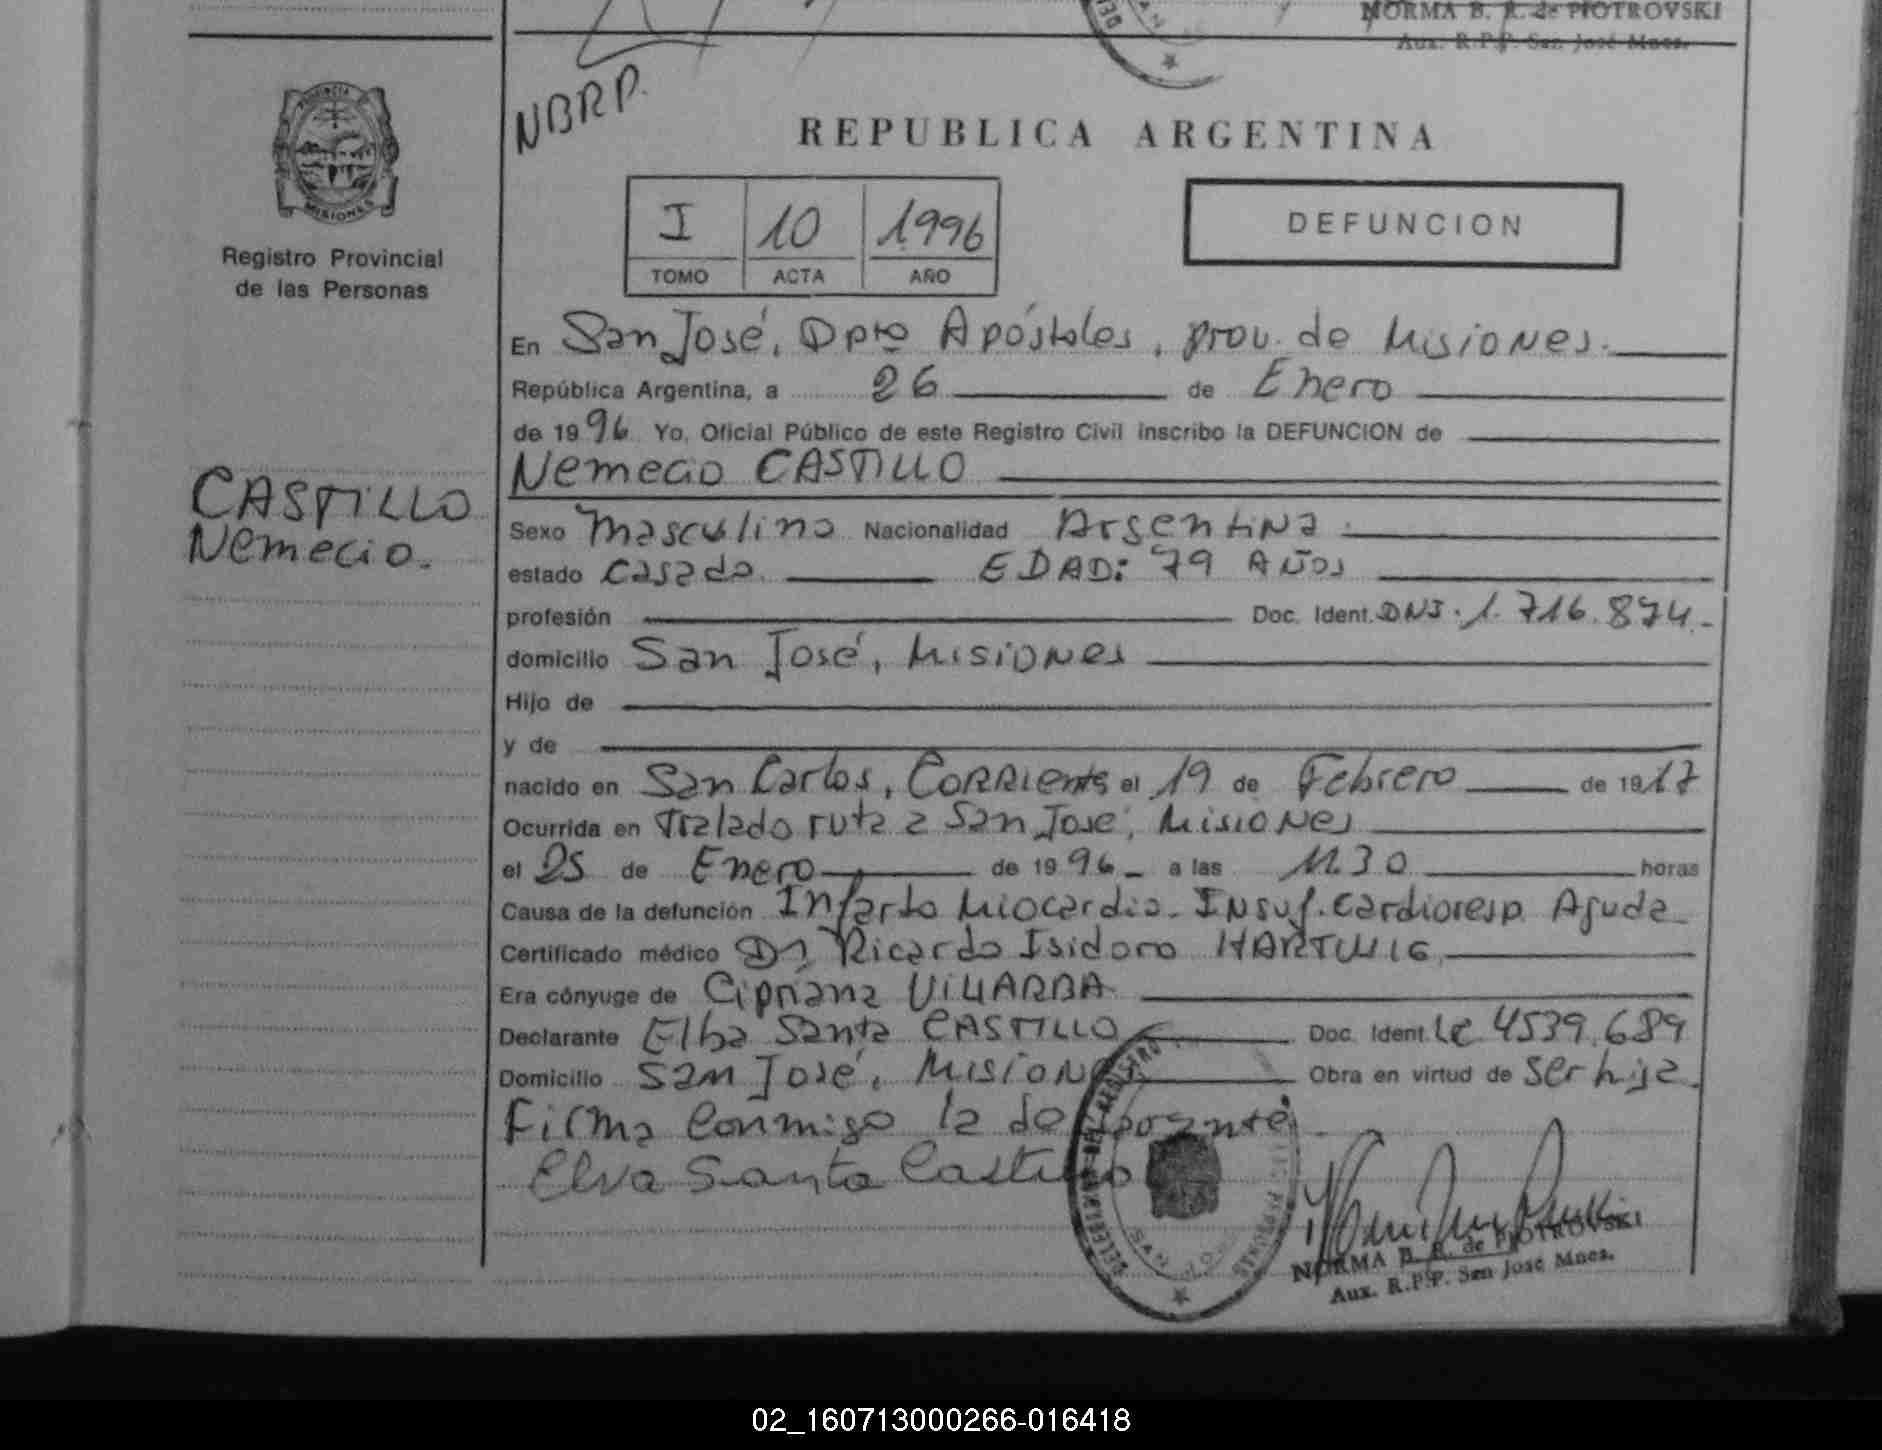 NORMA B. R. de PIOTROVSKI
Aux. R.P.P. San José Mnes.
NBRP.
REPUBLICA ARGENTINA
PROVINCIA
MISIONES
Registro Provincial
de las Personas
I 10 1996
TOMO ACTA AÑO
DEFUNCION
En San José, Dpto Apóstoles, prov. de Misiones.
República Argentina, a 26 de Enero
de 1996 Yo, Oficial Público de este Registro Civil inscribo la DEFUNCION de
Nemecio CASTILLO
CASTILLO
Nemecio.
Sexo Masculino Nacionalidad Argentina
estado Casado EDAD: 79 AÑOS
profesión Doc. Ident. DNI. 1.716.874.-
domicilio San José, Misiones
Hijo de
y de
nacido en San Carlos, Corrientes el 19 de Febrero de 1917
Ocurrida en Tralado ruta a San José, Misiones
el 25 de Enero de 1996 a las 11.30 horas
Causa de la defunción Infarto Miocardio. Insuf. Cardioresp. Aguda
Certificado médico Dr. Ricardo Isidoro
Era cónyuge de Cipriana VILLARBA
Declarante Elba Santa CASTILLO Doc. Ident. LC 4539.689
Domicilio San José, Misiones Obra en virtud de ser hija.
Firma Conmigo la
Elva Santa Castillo
NORMA B. R. de PIOTROVSKI
Aux. R.P.P. San José Mnes.
02_160713000266-016418